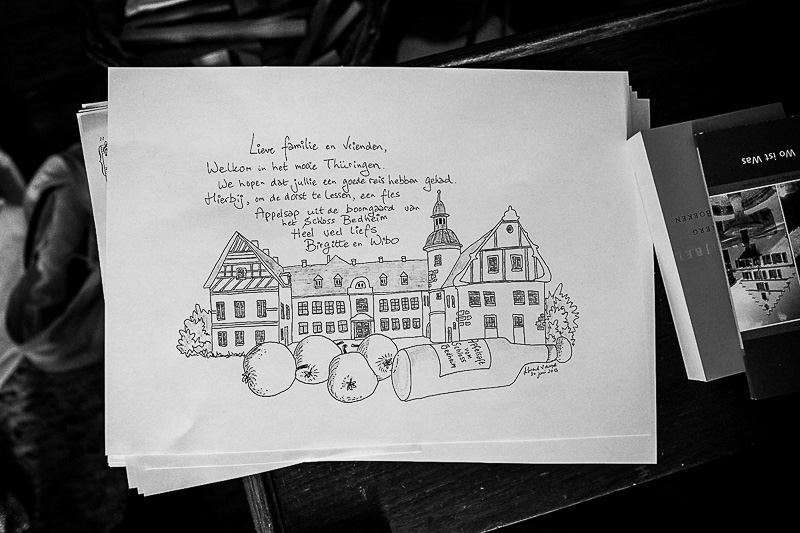 Lieve familie en vrienden,
Welkom in het mooie Thüringen.
We hopen dat jullie een goede reis hebben gehad.
Hierbij, om de dorst te lessen, een fles
Appelsap uit de boomgaard van
het Schloss Bedheim
Heel veel liefs
Birgitte en Wibo
Schloss
Bedheim
Wo ist Was